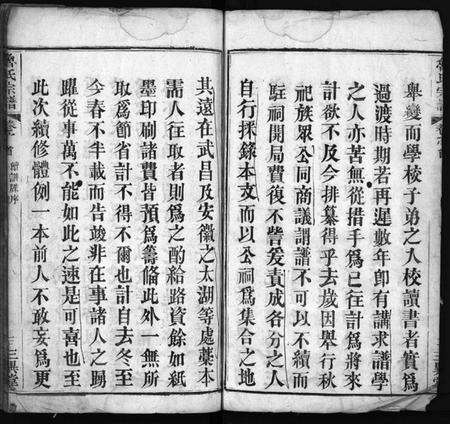 舉變而學校子弟之入校讀書者實爲
過渡時期若再遲數年即有講求譜學
之人亦苦無從措手爲已往計爲將來
計欲不及今排纂得乎去歲因舉行秋
祀族眾公同商議謂譜不可以不續而
駐祠開局費後不貲爰責成各分之人
自行採錄本支而以公祠爲集合之地
其遠在武昌及安徽之太湖等處藁本
需人往取者則爲之酌給路資餘如紙
墨印刷諸費皆預爲籌備此外一無所
取爲節省計不得不爾也計自去冬至
今春不半載而告竣非在事諸人之踴
躍從事萬不能如此之速是可喜也至
此次續修體例一本前人不敢妄爲更
氏宗譜
卷首
三異堂